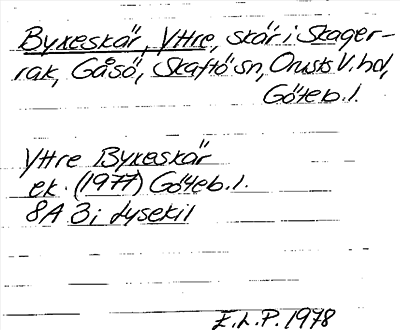 Byxeskär, Yttre, skär i Skager-
rak, Gåsö, Skaftö sn, Orusts V. hd,
Göteb. l.
Yttre Byxeskär
ek. (1977) Göteb. l.
8A 3i Lysekil
E.L.P. 1978